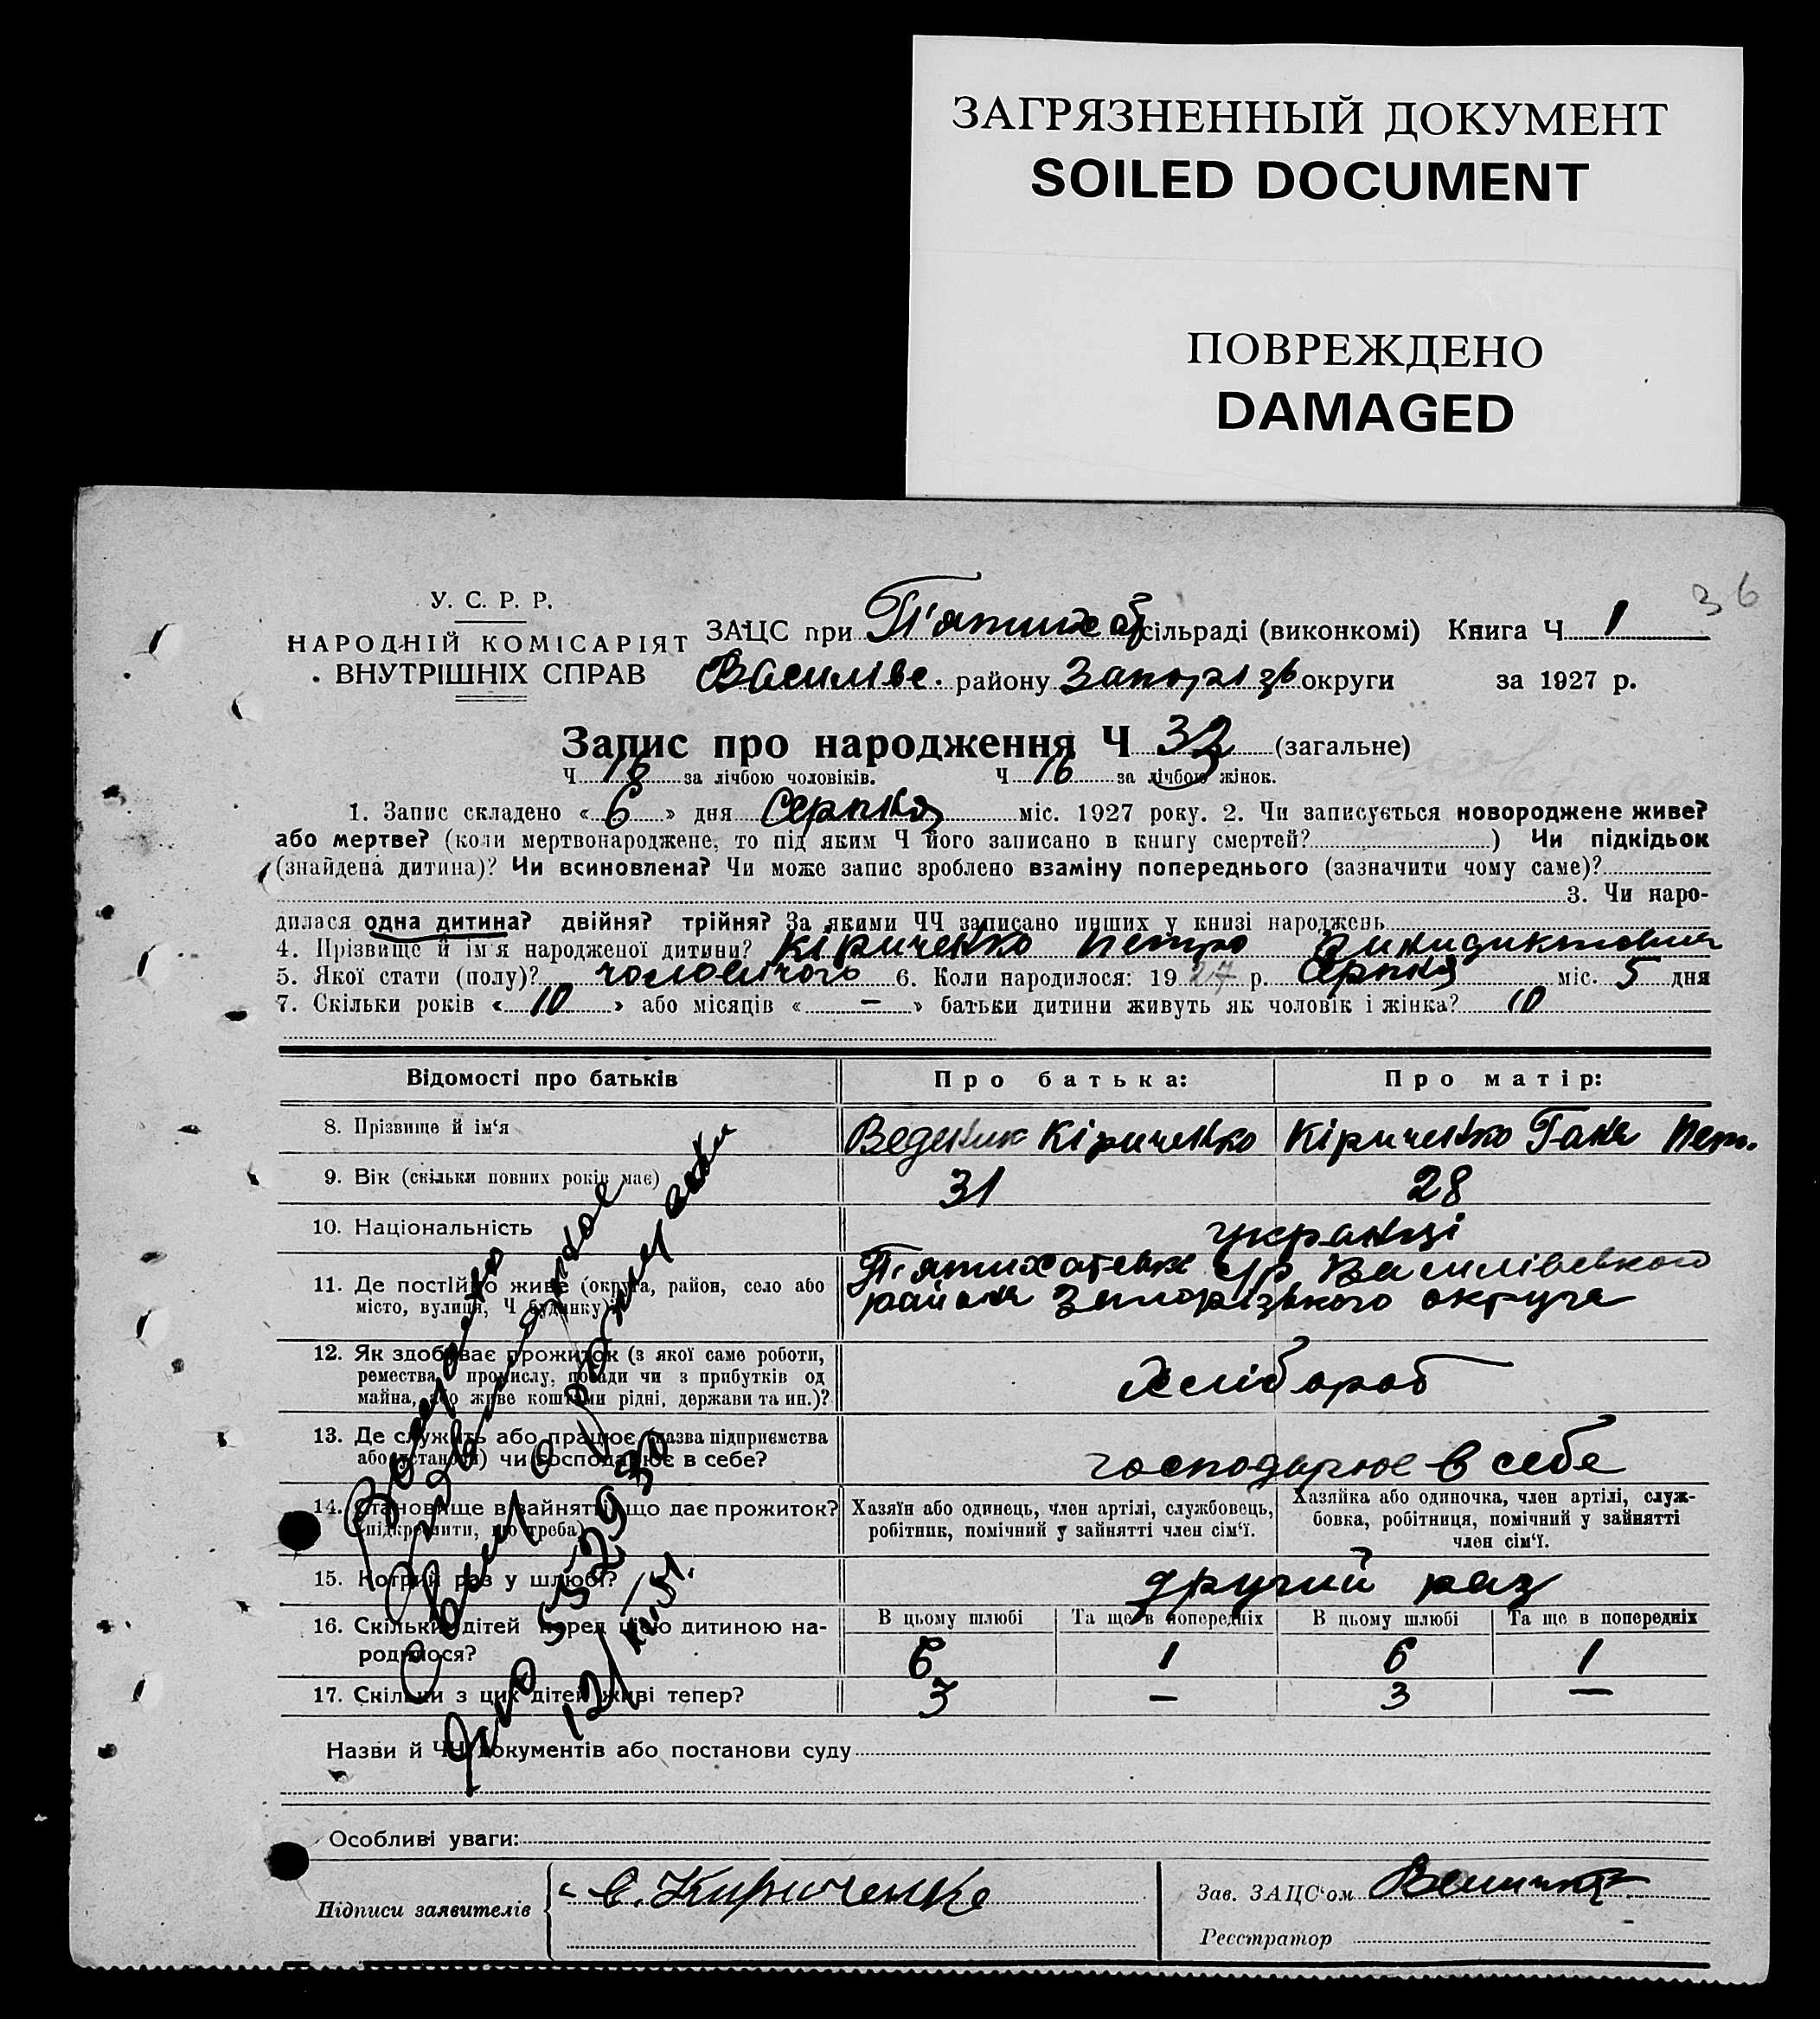 ЗАГРЯЗНЕННЫЙ ДОКУМЕНТ
SOILED DOCUMENT
ПОВРЕЖДЕНО
DAMAGED
36
У. С. Р. Р.
НАРОДНІЙ КОМІСАРІЯТ
ВНУТРІШНІХ СПРАВ
ЗАЦС при П'ятихат сільраді (виконкомі) Книга Ч 1
Василівс. району Запорізь округи за 1927 р.
Запис про народження Ч 32 (загальне)
Ч 16 за лічбою чоловіків. Ч 16 за лічбою жінок.
1. Запис складено «6» дня Серпня міс. 1927 року. 2. Чи записується новороджене живе?
або мертве? (коли мертвонароджене, то під яким Ч його записано в книгу смертей? ) Чи підкідьок
(знайдена дитина)? Чи всиновлена? Чи може запис зроблено взаміну попереднього (зазначити чому саме)?
3. Чи наро-
дилася одна дитина? двійня? трійня? За якими ЧЧ записано инших у книзі народжень
4. Прізвище й ім'я народженої дитини? Кіриченко Петро
5. Якої стати (полу)? чоловічого 6. Коли народилося: 1927 р. Серпня міс. 5 дня
7. Скільки років «10» або місяців «—» батьки дитини живуть як чоловік і жінка? 10
Відомості про батьків Про батька: Про матір:
8. Прізвище й ім'я Веденик Кіриченко Кіриченко Ганя Пет.
9. Вік (скільки повних років має) 31 28
10. Національність українці
11. Де постійно живе (округа, район, село або
місто, вулиця, Ч будинку)?
П'ятихатськ с/р Василівського
района Запорізького округа
12. Як здобуває прожиток (з якої саме роботи,
ремества, промислу, посади чи з прибутків од
майна, або живе коштами рідні, держави та ин.)?
Хлібороб
13. Де служить або працює (назва підприємства
або установи) чи господарює в себе?
господарює в себе
14. Становище в зайнятті, що дає прожиток?
(підкреслити, що треба)
Хазяїн або одинець, член артілі, службовець,
робітник, помічний у зайнятті член сім'ї.
Хазяйка або одиночка, член артілі, служ-
бовка, робітниця, помічний у зайнятті
член сім'ї.
15. Котрий раз у шлюбі? другий раз
В цьому шлюбі Та ще в попередніх В цьому шлюбі Та ще в попередніх
16. Скільки дітей перед цією дитиною на-
родилося?
6 1 6 1
17. Скільки з цих дітей живі тепер? 3 — 3 —
Назви й ЧЧ документів або постанови суду
Особливі уваги:
Підписи заявителів В. Кириченко
Зав. ЗАЦС'ом
Реєстратор